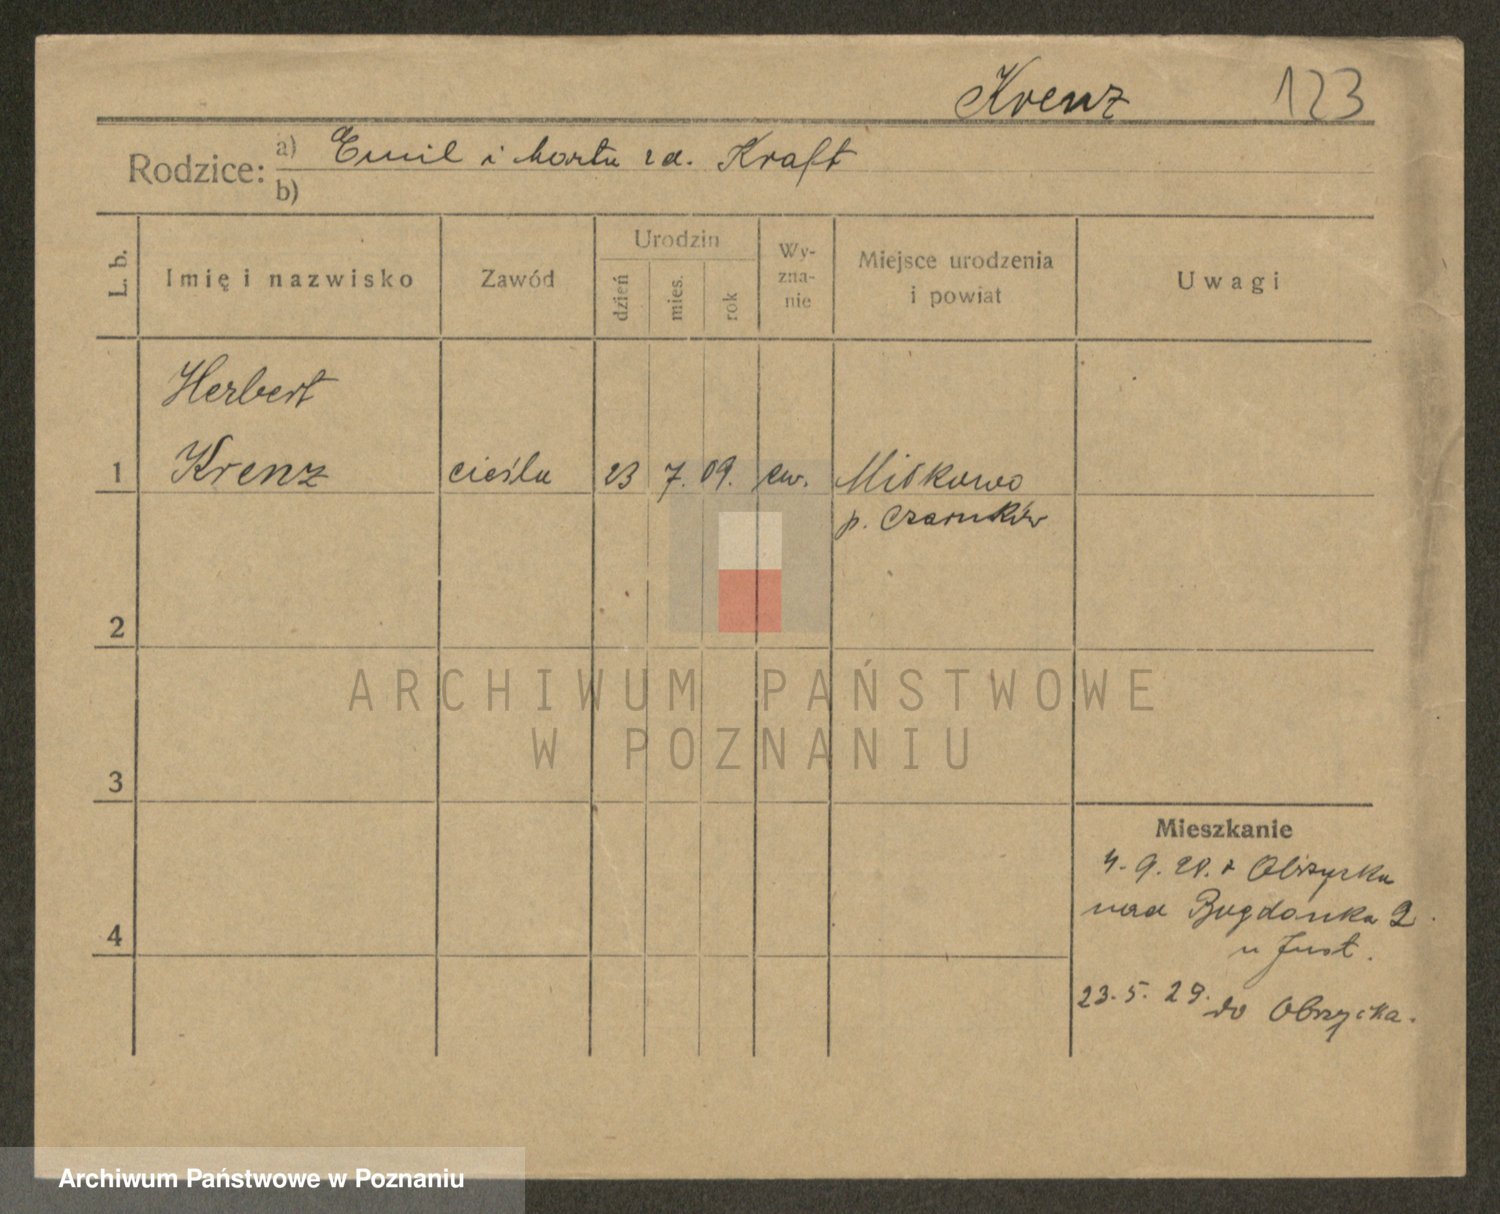 Krenz 123
Rodzice: a) Emil i Marta zd. Kraft
b)
L. b. Imię i nazwisko Zawód Urodzin dzień mies. rok Wy-zna-nie Miejsce urodzenia i powiat Uwagi
Herbert
1 Krenz cieśla 23 7. 09. ew. Miłkowo
p. Czarnków
2
3
4
Mieszkanie
4. 9. 28. z Obrzycka
nad Bogdanką 2.
u Just.
23. 5. 29. do Obrzycka.
ARCHIWUM PAŃSTWOWE
W POZNANIU
Archiwum Państwowe w Poznaniu